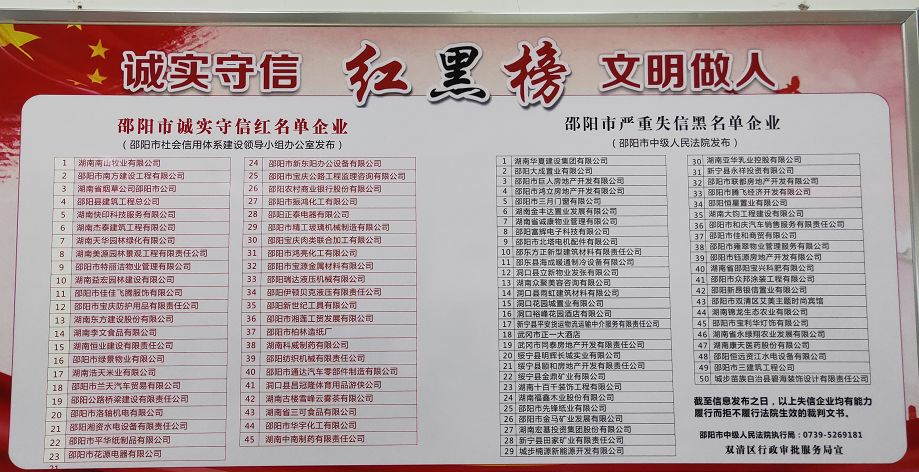 诚实守信 红黑榜 文明做人
邵阳市诚实守信红名单企业
（邵阳市社会信用体系建设领导小组办公室发布）
1 湖南南山牧业有限公司
2 邵阳市南方建设工程有限公司
3 湖南省烟草公司邵阳市公司
4 邵阳县建筑工程总公司
5 湖南快印科技服务有限公司
6 湖南杰泰建筑工程有限公司
7 湖南天华园林绿化有限公司
8 湖南美源园林景观工程有限责任公司
9 邵阳市特丽洁物业管理有限公司
10 湖南益宏园林建设有限公司
11 邵阳市佳佳飞腾服饰有限公司
12 邵阳市宝庆纺护用品有限责任公司
13 湖南东方建设股份有限公司
14 湖南李文食品有限公司
15 湖南恒业建设有限责任公司
16 邵阳市绿景物业有限公司
17 湖南浩天米业有限公司
18 邵阳市兰天汽车贸易有限公司
19 邵阳公路桥梁建设有限责任公司
20 邵阳市洛轴机电有限公司
21 邵阳湘资水电设备有限责任公司
22 邵阳市平华纸制品有限公司
23 邵阳市花源电器有限公司
24 邵阳市新东阳办公设备有限公司
25 邵阳市宝庆公路工程监理咨询有限公司
26 邵阳农村商业银行股份有限公司
27 邵阳市振鸿化工有限公司
28 邵阳正泰电器有限公司
29 邵阳市精工玻璃机械制造有限公司
30 邵阳宝庆肉类联合加工有限公司
31 邵阳市鸿亮化工有限公司
32 邵阳市宝源金属材料有限公司
33 邵阳瑞达液压机械有限公司
34 邵阳伊顿贝克液压有限责任公司
35 邵阳新世纪工具有限公司
36 邵阳市湘莲工贸发展有限公司
37 邵阳市柏林造纸厂
38 湖南科威制药有限公司
39 邵阳纺织机械有限责任公司
40 邵阳市通达汽车零部件制造有限公司
41 洞口县昌冠隆体育用品游侠公司
42 湖南古楼雪峰云雾茶有限公司
43 湖南省三可食品有限公司
44 邵阳市华宇化工有限公司
45 湖南中南制药有限责任公司
邵阳市严重失信黑名单企业
（邵阳市中级人民法院发布）
1 湖南华夏建设集团有限公司
2 邵阳大成置业有限公司
3 邵阳市巨人房地产开发有限公司
4 邵阳市鸿立房地产开发有限公司
5 邵阳市三月门窗有限公司
6 湖南金丰达置业发展有限公司
7 湖南省诚康物业管理有限公司
8 邵阳富辉电子科技有限公司
9 邵阳市北塔电机配件有限公司
10 邵东方正新型建筑材料有限责任公司
11 邵东县海成暖通制冷设备有限公司
12 洞口县立新物业发张有限公司
13 湖南众聚美容咨询有限公司
14 洞口县周红建筑材料有限公司
15 洞口花园城置业有限公司
16 洞口裕峰花园酒店有限公司
17 新宁县平安货运物流运输中介服务有限责任公司
18 武冈市正一大酒店
19 武冈市同泰房地产开发有限责任公司
20 绥宁县明辉长城实业有限公司
21 绥宁县颐和房地产开发有限责任公司
22 绥宁县金鼎矿业有限公司
23 湖南十百千装饰工程有限公司
24 湖南福鑫木业股份有限公司
25 邵阳市先锋纸业有限公司
26 邵阳市金马矿业发展有限公司
27 湖南宏基投资集团股份有限公司
28 新宁县田家矿业有限责任公司
29 城步楠源新能源开发有限公司
30 湖南亚华乳业控股有限公司
31 新宁县永祥投资有限公司
32 邵阳市联都房地产开发有限公司
33 邵阳市腾飞经济开发有限公司
34 邵阳恒星置业有限公司
35 湖南大钧工程建设有限公司
36 邵阳市和庆汽车销售服务有限责任公司
37 邵阳市佳和商贸有限公司
38 邵阳市雍翠物业管理服务有限公司
39 邵阳市钰源房地产开发有限公司
40 湖南省邵阳宝兴科肥有限公司
41 邵阳市众邦涂装工程有限公司
42 邵阳新昂银信置业有限公司
43 邵阳市双清区艾美主题时尚宾馆
44 湖南锦龙生态农业有限公司
45 邵阳市宝利华灯饰有限公司
46 湖南省永绿翔农业发展有限公司
47 湖南康天医药股份有限公司
48 邵阳恒远资江水电设备有限公司
49 邵阳市三建筑工程公司
50 城步苗族自治县碧海装饰设计有限责任公司
截至信息发布之日，以上失信企业均有能力
履行而拒不履行法院生效的裁判文书。
邵阳市中级人民法院执行局：0739-5269181
双清区行政审批服务局宣